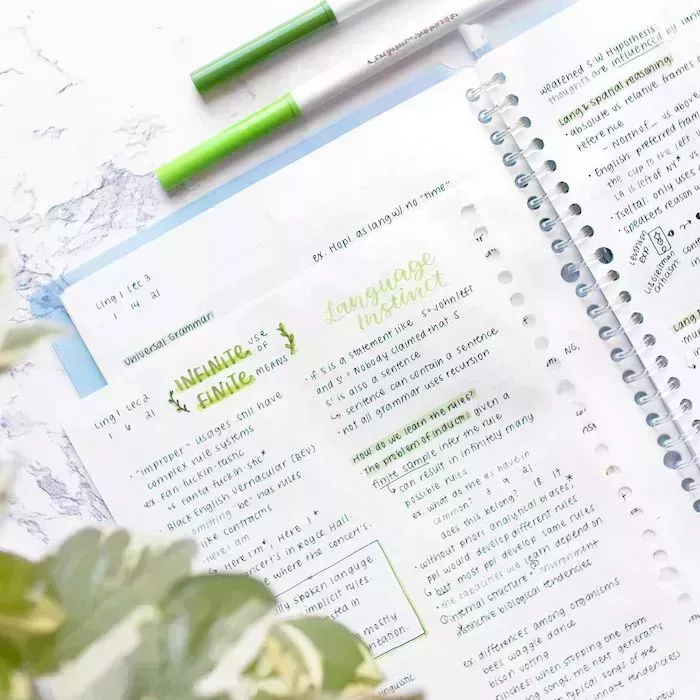 Crayola SuperTips
ex. Hopi as lang w/ no "time"
Ling 1 Lec 3
1 14 21
Universal Grammar
Ling 1 Lec 2
1 6 21
INFINITE USE
OF
FINITE MEANS
· "improper" usages still have
complex rule systems
ex. Fan fuckin-tastic
vs Fanta fuckin-stic*
Black English Vernacular (BEV)
omitting "be" has rules
like contractns
Here I am
Here I'm*, Here I*
concert's in Royce Hall.
where the concert's.
spoken language
implicit rules.
mostly
Language
Instinct
· if S is a statement like S = John left
and S' = Nobody claimed that S
S' is also a sentence
↳ sentence can contain a sentence
· not all grammar uses recursion
How do we learn the rules?
· The problem of inductn: given a
finite sample infer the rule
↳ can result in infinitely many
possible rules
ex. what do the #s have in
common? 3 9 21
does this belong? 18 17
· without priori analytical biases,*
ppl would develop different rules
↳ but most ppl develop same rules
· the capacities we learn depend on
① internal structure + ② environment
instinctive biological tendencies
ex. differences among organisms
bees waggle dance
bison voting
when stopping one from
song, the next generatns
songs of the
tendencies)
weakened S-W Hypothesis
thoughts are influenced by lang
Lang & spatial reasoning
· absolute vs relative frames of
reference
- North of
· English: preferred
the cup to the left
LA is left of NY*
· Tseltal: only uses
speakers reason
Levinson
Exp.
Li & Gleitman